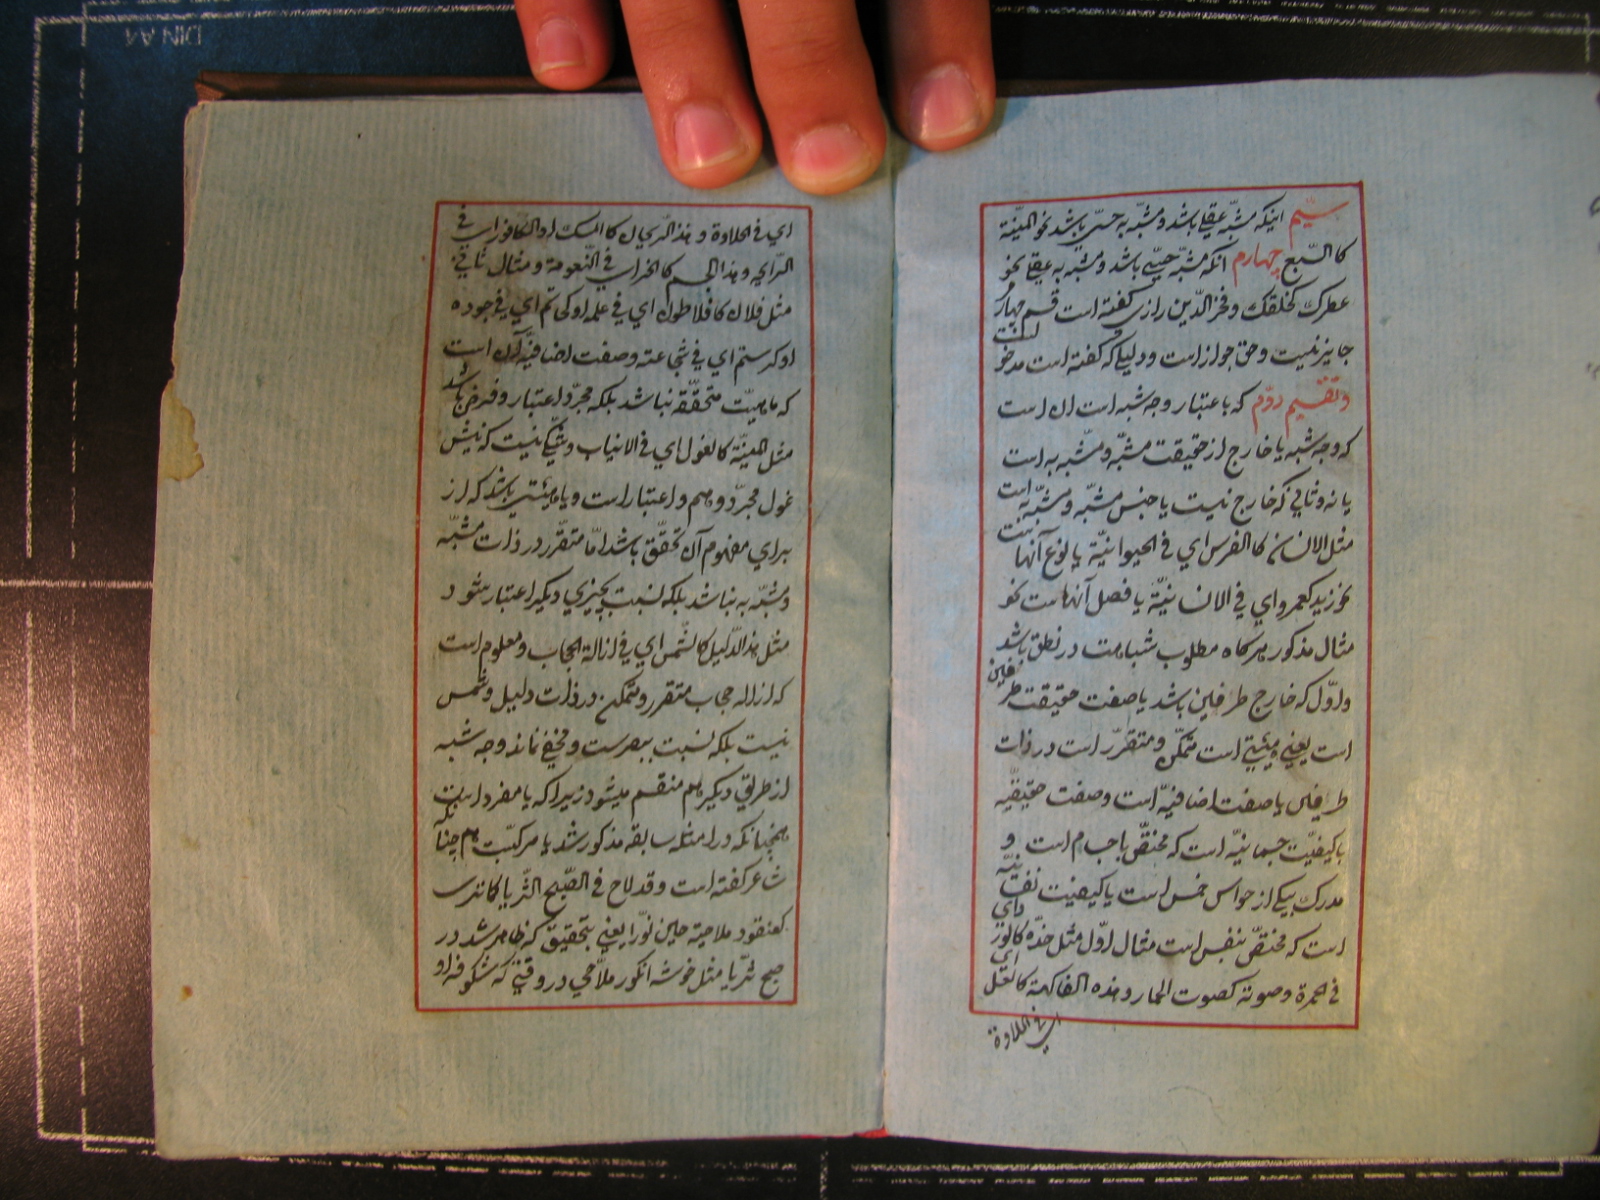 سیّم اینکه مشبّه عقلی باشد و مشبّه به حسّی باشد نحو المنیّة
کالسّبع چهارم انکه مشبّه حسّی باشد و مشبّه به عقلی نحو
عطرک کخلقک و فخر الدّین رازی کفته است قسم چهارم
جایز نیست و حق جواز است و دلیلی که کفته است مدخو
لست
و تقسیم دوّم که باعتبار وجه شبه است ان است
که وجه شبه یا خارج از حقیقت مشبّه و مشبّه به است
یا نه و ثانی که خارج نیست یا جنس مشبّه و مشبّه به است
مثل الانسان کالفرس ای فی الحیوانیّة یا نوع آنها
نحو زید کعمرو ای فی الانسانیّة یا فصل آنهاست نحو
مثال مذکور هرکاه مطلوب شباهت در نطق باشد
و اوّل که خارج طرفین باشد یا صفت حقیقت طرفین
است یعنی هیئتی است متمکّن و متقرّر است در ذات
طرفین یا صفت اضافیّه است و صفت حقیقیّه
یا کیفیّت جسمانیّه است که مختصّ باجسام است و
مدرک بیکی از حواس خمس است یا کیفیت نفسانیّه
است که مختصّ بنفس است مثال اوّل مثل خدّه کالورد ای
فی الحمرة و صوته کصوت الحمار و هذه الفاکهة کالعسل
ای فی الحلاوة
ای فی الحلاوة و هذا الریحان کالمسک او الکافور ای فی
الرّایحه و هذا الجسم کالخز ای فی النّعومة و مثال ثانی
مثل فلان کافلاطون ای فی علمه او کحاتم ای فی جوده
او کرستم ای فی شجاعته و صفت اضافیّه آن است
که ماهیّت متحقّقه نباشد بلکه مجرّد اعتبار و فرض باشد
مثل المنیّة کالغول ای فی الانیاب و شکّی نیست که نیش
غول مجرّد وهم و اعتبار است و یا هیئتی باشد که از
برای مفهوم آن تحقّق باشد امّا متقرّر در ذات مشبّه
و مشبّه به نباشد بلکه نسبت بچیزی دیکر اعتبار شود
مثل هذا الدّلیل کالشّمس ای فی ازالة الحجاب و معلوم است
که ازاله حجاب متقرر و متمکن در ذات دلیل و شمس
نیست بلکه نسبت ببصرست و مخفی نماند وجه شبه
از طریقی دیکر هم منقسم میشود زیرا که یا مفرد است
همچنانکه در امثله سابقه مذکور شد یا مرکبّست هم چنانکه
شاعر کفته است و قد لاح فی الصّبح الثّریا کما تری
کعنقود ملاحیة حین نوّرا یعنی بتحقیق که ظاهر شد در
صبح ثریّا مثل خوشه انکور ملّاحی در وقتی که شکوفه او